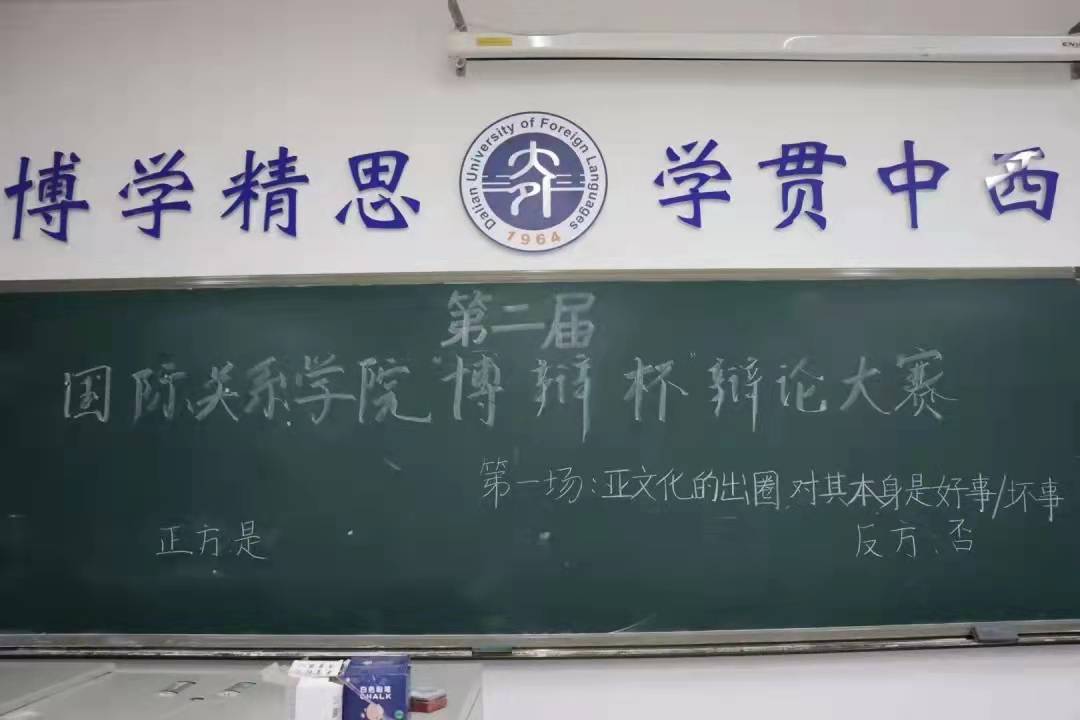 博学精思
Dalian University of Foreign Languages
大外
1964
学贯中西
第二届
国际关系学院“博辩杯”辩论大赛
第一场:亚文化的出圈对其本身是好事/坏事
正方:是
反方:否
白色粉笔
CHALK